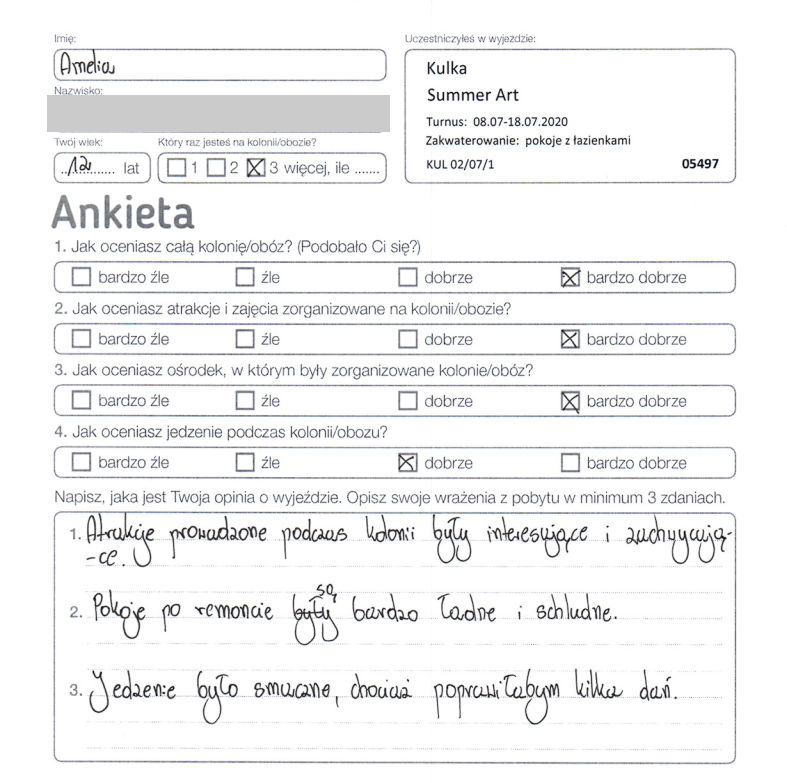 Imię:
Amelia
Nazwisko:
Twój wiek:
12 lat
Który raz jesteś na kolonii/obozie?
1 2 3 więcej, ile .......
Uczestniczyłeś w wyjeździe:
Kulka
Summer Art
Turnus: 08.07-18.07.2020
Zakwaterowanie: pokoje z łazienkami
KUL 02/07/1 05497
Ankieta
1. Jak oceniasz całą kolonię/obóz? (Podobało Ci się?)
bardzo źle źle dobrze bardzo dobrze
2. Jak oceniasz atrakcje i zajęcia zorganizowane na kolonii/obozie?
bardzo źle źle dobrze bardzo dobrze
3. Jak oceniasz ośrodek, w którym były zorganizowane kolonie/obóz?
bardzo źle źle dobrze bardzo dobrze
4. Jak oceniasz jedzenie podczas kolonii/obozu?
bardzo źle źle dobrze bardzo dobrze
Napisz, jaka jest Twoja opinia o wyjeździe. Opisz swoje wrażenia z pobytu w minimum 3 zdaniach.
1. Atrakcje prowadzone podczas kolonii były interesujące i zachwycają-
-ce.
są
2. Pokoje po remoncie były bardzo ładne i schludne.
3. Jedzenie było smaczne, chociaż poprawiłabym kilka dań.